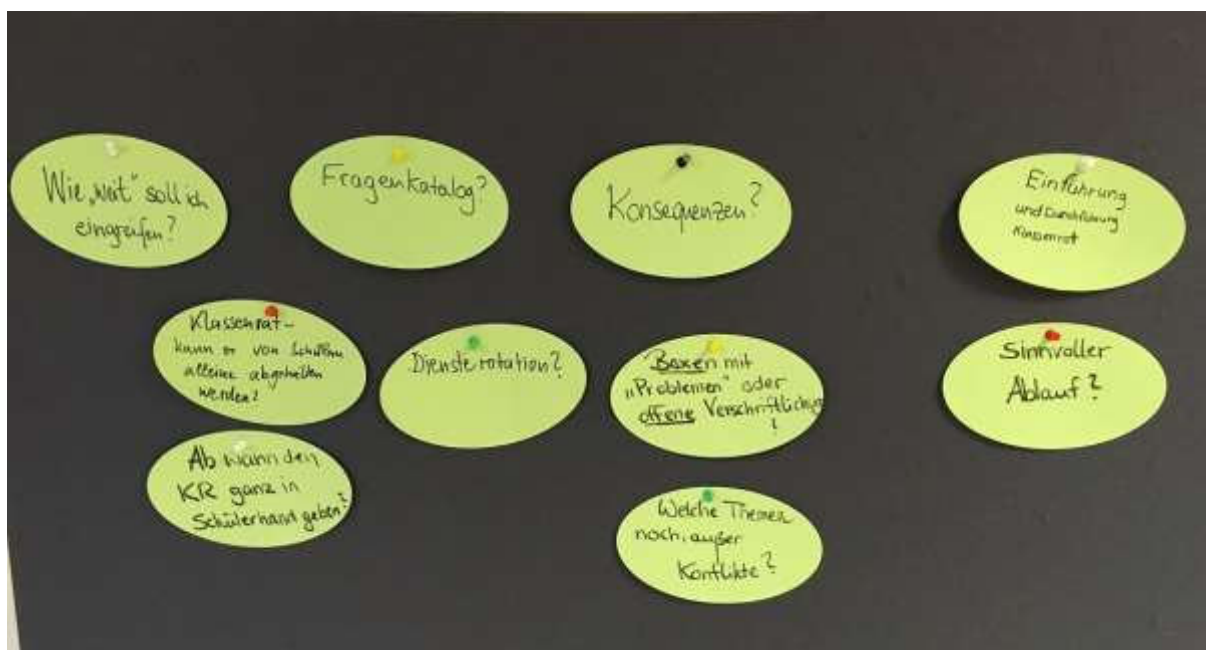 Wie „weit" soll ich
eingreifen?
Fragenkatalog?
Konsequenzen?
Einführung
und Durchführung
Klassenrat
Klassenrat –
kann er von Schülern
alleine abgehalten
werden?
Diensterotation?
Boxen mit
„Problemen" oder
offene Verschriftlichung
?
Sinnvoller
Ablauf?
Ab wann den
KR ganz in
Schülerhand geben?
Welche Themen
noch, außer
Konflikte?